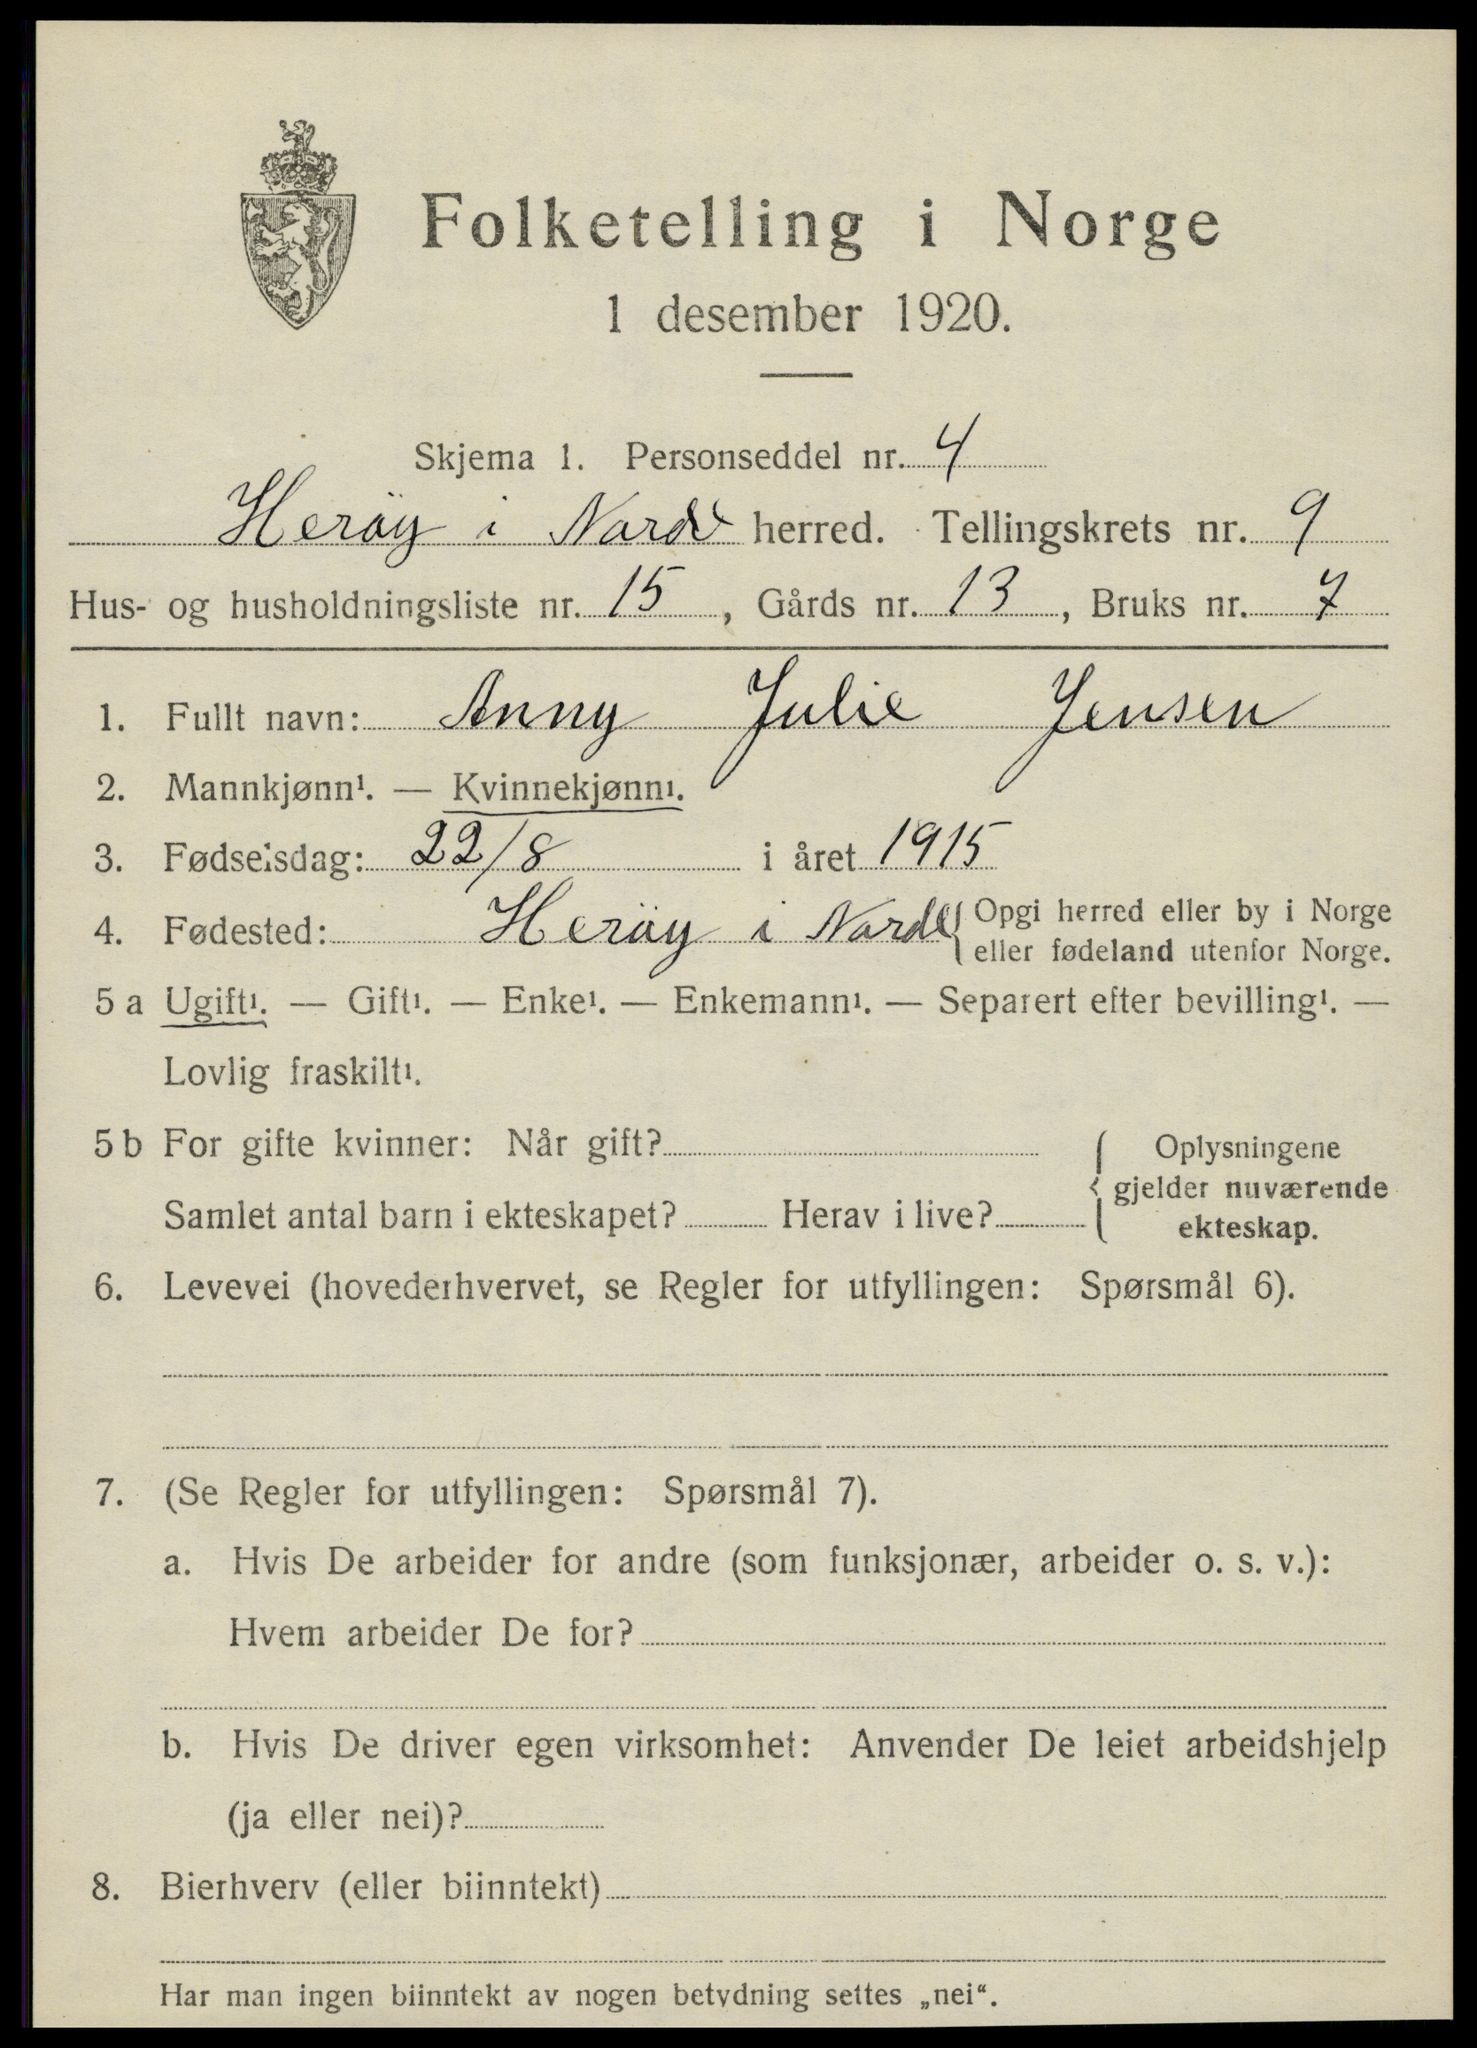 Folketelling i Norge
1 desember 1920.
Skjema 1. Personseddel nr. 4
Herøy i Nordl herred. Tellingskrets nr. 9
Hus- og husholdningsliste nr. 15, Gårds nr. 13, Bruks nr. 7
1. Fullt navn: Anny Julie Jensen
2. Mannkjønn¹. — Kvinnekjønn¹.
3. Fødselsdag: 22/8 i året 1915
4. Fødested: Herøy i Nordl { Opgi herred eller by i Norge
eller fødeland utenfor Norge.
5 a Ugift¹. — Gift¹. — Enke¹. — Enkemann¹. — Separert efter bevilling¹. —
Lovlig fraskilt¹.
5 b For gifte kvinner: Når gift?
Samlet antal barn i ekteskapet? Herav i live?
{ Oplysningene
gjelder nuværende
ekteskap.
6. Levevei (hovederhvervet, se Regler for utfyllingen: Spørsmål 6).
7. (Se Regler for utfyllingen: Spørsmål 7).
a. Hvis De arbeider for andre (som funksjonær, arbeider o. s. v.):
Hvem arbeider De for?
b. Hvis De driver egen virksomhet: Anvender De leiet arbeidshjelp
(ja eller nei)?
8. Bierhverv (eller biinntekt)
Har man ingen biinntekt av nogen betydning settes „nei“.